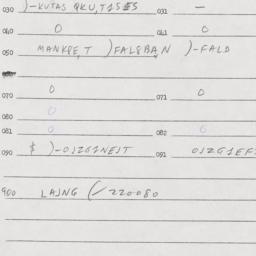 030 )-KUTAS QKU,T1SES 031 —
040 0 041 0
050 MANKPE,T )FALGBA,N )-FALD
070 0 071 0
080 0
081 0 082 0
090 $ )-01261NEJT 091 01261EF
900 LAJNG (/220080